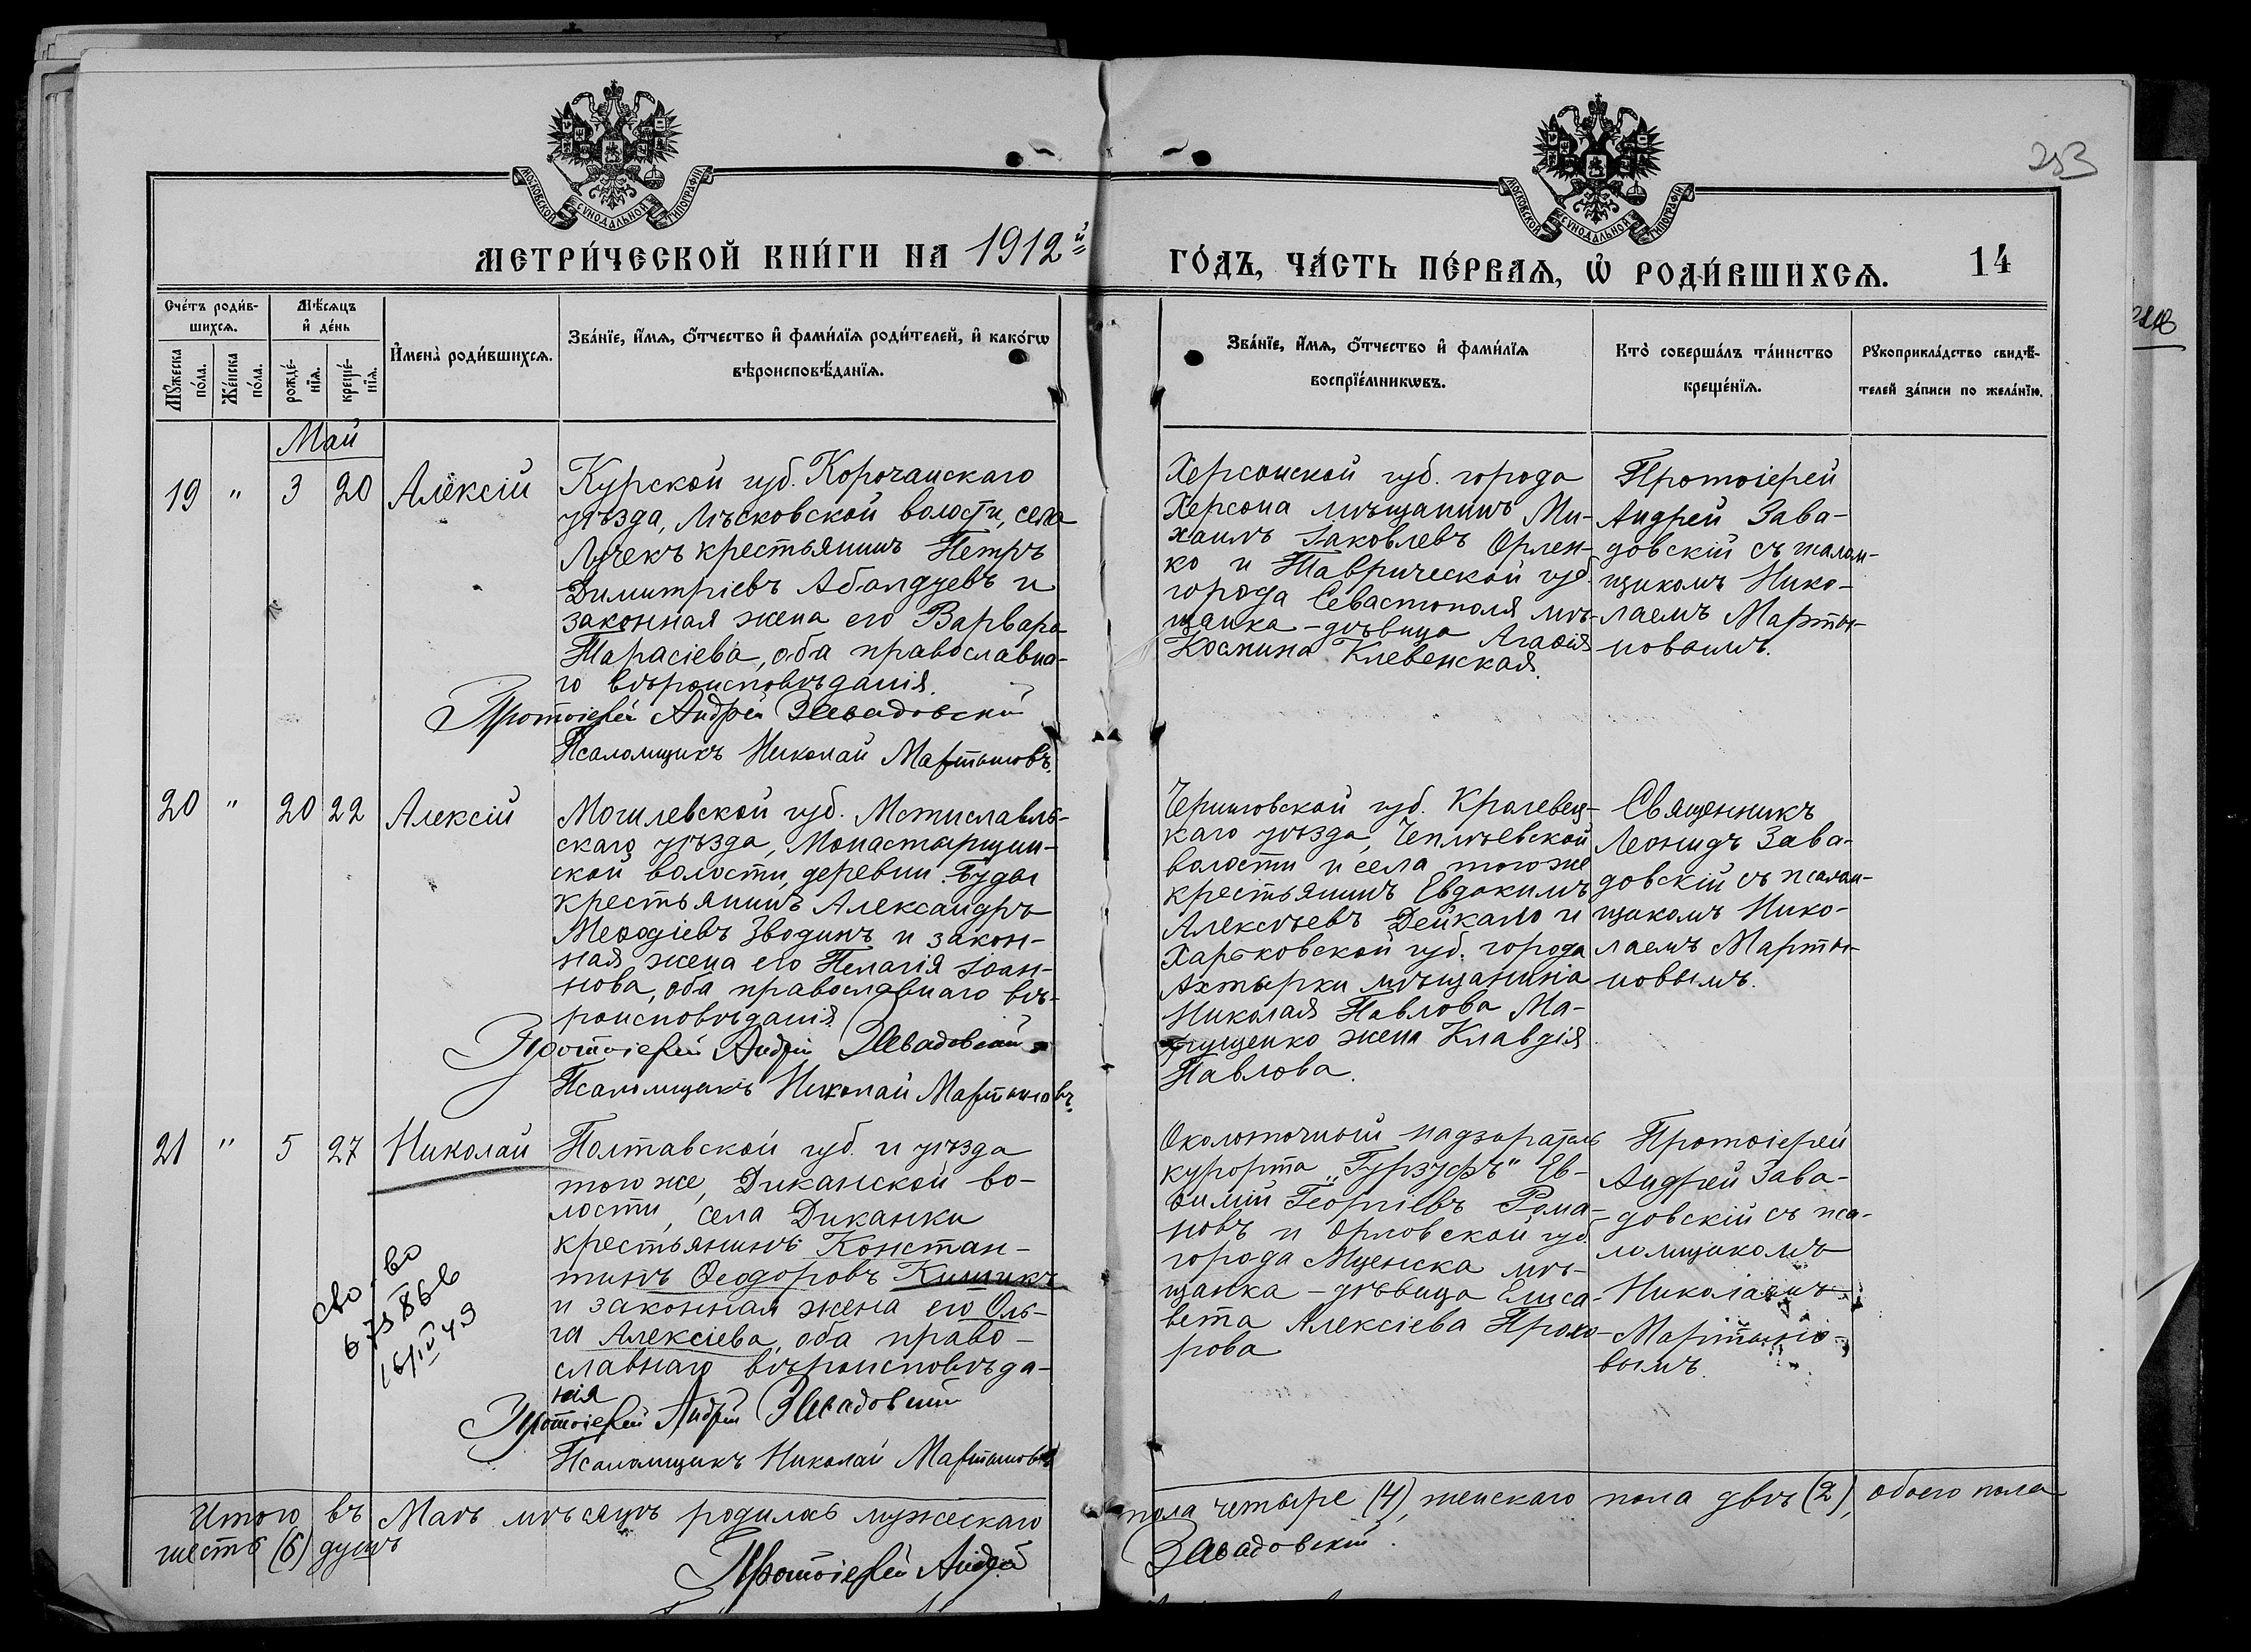 МОСКОВСКОЙ СѴНОДАЛЬНОЙ ТИПОГРАФІИ
МОСКОВСКОЙ СѴНОДАЛЬНОЙ ТИПОГРАФІИ
253
МЕТРИ́ЧЕСКОЙ КНИ́ГИ НА 1912й
ГО́ДЪ, ЧА́СТЬ ПЕ́РВАѦ, Ѡ РОДИ́ВШИХСѦ.
14
Сче́тъ роди́в-
шихсѧ.
Мꙋ́жеска
по́ла.
Же́нска
по́ла.
Мѣ́сѧцъ
и҆ де́нь
рожде́-
нїѧ.
креще́-
нїѧ.
И҆мена̀ роди́вшихсѧ.
Зва́нїе, и҆́мѧ, ѻ҆́тчество и҆ фами́лїѧ роди́телей, и҆ како́гѡ
вѣроисповѣ́данїѧ.
Зва́нїе, и҆́мѧ, ѻ҆́тчество и҆ фами́лїѧ
воспрїе́мникѡвъ.
Кто̀ соверша́лъ та́инство
креще́нїѧ.
Рꙋкоприкла́дство свидѣ́-
телей за́писи по жела́нїю.
Май
19 " 3 20 Алексій
Курской губ. Корочанскаго
уѣзда, Лѣсковской волости, села
Лучекъ крестьянинъ Петръ
Димитріевъ Абалдуевъ и
законная жена его Варвара
Тарасіева, оба православна-
го вѣроисповѣданія.
Протоіерей Андрей Завадовскій
Псаломщикъ Николай Мартыновъ.
Херсонской губ. города
Херсона мѣщанинъ Ми-
хаилъ Іаковлевъ Орлен-
ко и Таврической губ.
города Севастополя мѣ-
щанка - дѣвица Агаѳія
Космина Клевенская.
Протоіерей
Андрей Зава-
довскій съ псалом-
щикомъ Нико-
лаемъ Марты-
новымъ.
20 " 20 22 Алексій
Могилевской губ. Мстиславль-
скаго уѣзда, Монастырщин-
ской волости, деревни Буды
крестьянинъ Александръ
Меѳодіевъ Зводинъ и закон-
ная жена его Пелагія Іоан-
нова, оба православнаго вѣ-
роисповѣданія.
Протоіерей Андрей Завадовскій
Псаломщикъ Николай Мартыновъ.
Черниговской губ. Кролевец-
каго уѣзда, Чеплѣевской
волости и села того же
крестьянинъ Евдокимъ
Алексѣевъ Дейкало и
Харьковской губ. города
Ахтырки мѣщанина
Николая Павлова Ма-
трущенко жена Клавдія
Павлова.
Священникъ
Леонидъ Зава-
довскій съ псалом-
щикомъ Нико-
лаемъ Марты-
новымъ.
21 " 5 27 Николай
Полтавской губ. и уѣзда
того же, Диканской во-
лости, села Диканки
крестьянинъ Констан-
тинъ Ѳеодоровъ Кишикъ
и законная жена его Оль-
га Алексіева, оба право-
славнаго вѣроисповѣда-
нія
Протоіерей Андрей Завадовскій
Псаломщикъ Николай Мартыновъ
сво-во
16/IV 49
Околоточный надзиратель
курорта "Гурзуфъ" Ев-
ѳимій Георгіевъ Рома-
новъ и Орловской губ.
города Мценска мѣ-
щанка - дѣвица Елиса-
вета Алексіева Прохо-
рова
Протоіерей
Андрей Зава-
довскій съ пса-
ломщикомъ
Николаемъ
Мартыно-
вымъ.
Итого въ Маѣ мѣсяцѣ родилось мужескаго пола четыре (4), женскаго пола двѣ (2), обоего пола
шесть (6) душъ
Протоіерей Андрей Завадовскій.